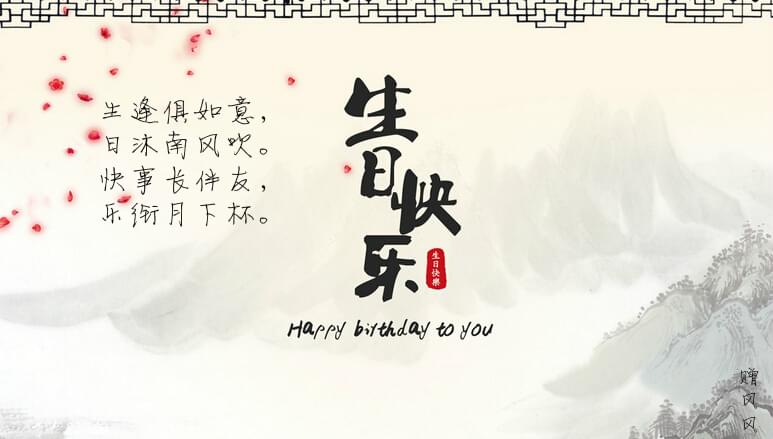 生逢俱如意，
日沐南风吹。
快事长伴友，
乐衔月下杯。
生日快乐
生日快樂
Happy birthday to you
赠风风